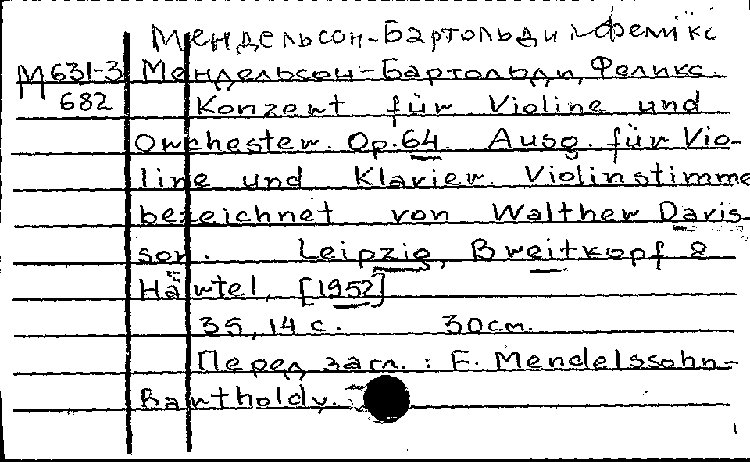 Мендельсон-Бартольди Фелікс
М631-3 Мендельсон-Бартольди, Феликс.
682 Konzert für Violine und
Orchester. Op. 64. Ausg. für Vio-
line und Klavier. Violinstimme
bezeichnet von Walther Davis-
son. Leipzig, Breitkopf &
Härtel, [1952]
35, 14 с. 30 cm.
Перед загл.: F. Mendelssohn-
Bartholdy.